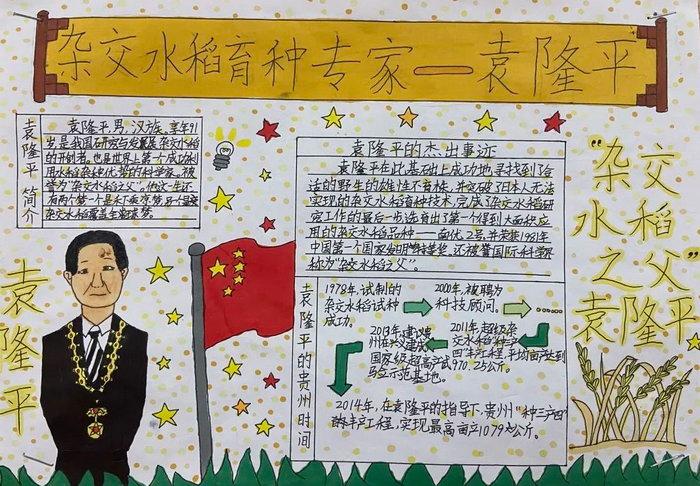 杂交水稻育种专家—袁隆平
袁隆平简介
袁隆平,男,汉族,享年91
岁,是我国研究与发展杂交水稻
的开创者,也是世界上第一个成功利
用水稻杂种优势的科学家,被
誉为“杂交水稻之父”。他这一生还
有两个梦,一个是禾下乘凉梦,另一个是
杂交水稻覆盖全球梦。
袁隆平的杰出事迹
袁隆平在此基础上成功地寻找到了合
适的野生的雄性不育株,并突破了日本人无法
实现的杂交水稻育种技术,完成了杂交水稻研
究工作的最后一步,选育出了第一个得到大面积应
用的杂交水稻品种——南优2号,并荣获1981年
中国第一个国家发明特等奖,还被誉国际科学界
称为“杂交水稻之父”。
“杂交
水稻
之父”
袁隆平
袁隆平
袁隆平的贵州时间
1978年,试制的
杂交水稻试种
成功。
2000年,被聘为
科技顾问。
2011年,超级杂
交水稻种产
四丰产工程,平均亩产达到
970.25公斤。
2013年,
州在兴义建
国家级超高产试
示范基地。
2014年,在袁隆平的指导下,贵州“种三产四”
丰产工程,实现最高亩产1079公斤。